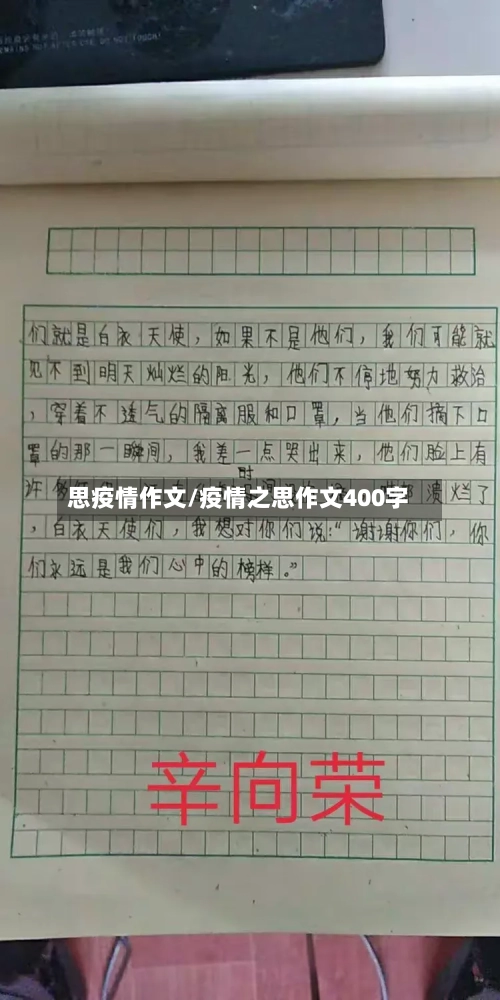 们就是白衣天使，如果不是他们，我们可能就
见不到明天灿烂的阳光，他们不停地努力救治
，穿着不透气的隔离服和口罩，当他们摘下口
罩的那一瞬间，我差一点哭出来，他们脸上有
时
许
思疫情作文/疫情之思作文400字
溃烂了
，白衣天使们，我想对你们说：“谢谢你们，你
们永远是我们心中的榜样。”
辛向荣